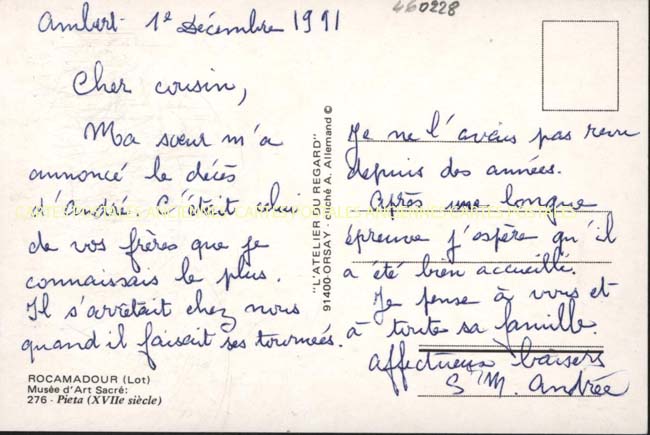 Ambert - 1e Décembre 1991
460228
Cher cousin,
Ma sœur m'a
annoncé le décès
d'André. C'était celui
de vos frères que je
connaissais le plus.
Il s'arrêtait chez nous
quand il faisait ses tournées.
ROCAMADOUR (Lot)
Musée d'Art Sacré:
276 - Pieta (XVIIe siècle)
"L'ATELIER DU REGARD"
91400-ORSAY - cliché A. Allemand ©
Je ne l'avais pas revu
depuis des années.
Après une longue
épreuve j'espère qu'il
a été bien accueilli.
Je pense à vous et
à toute sa famille.
Affectueux baisers
Sr M. Andrée